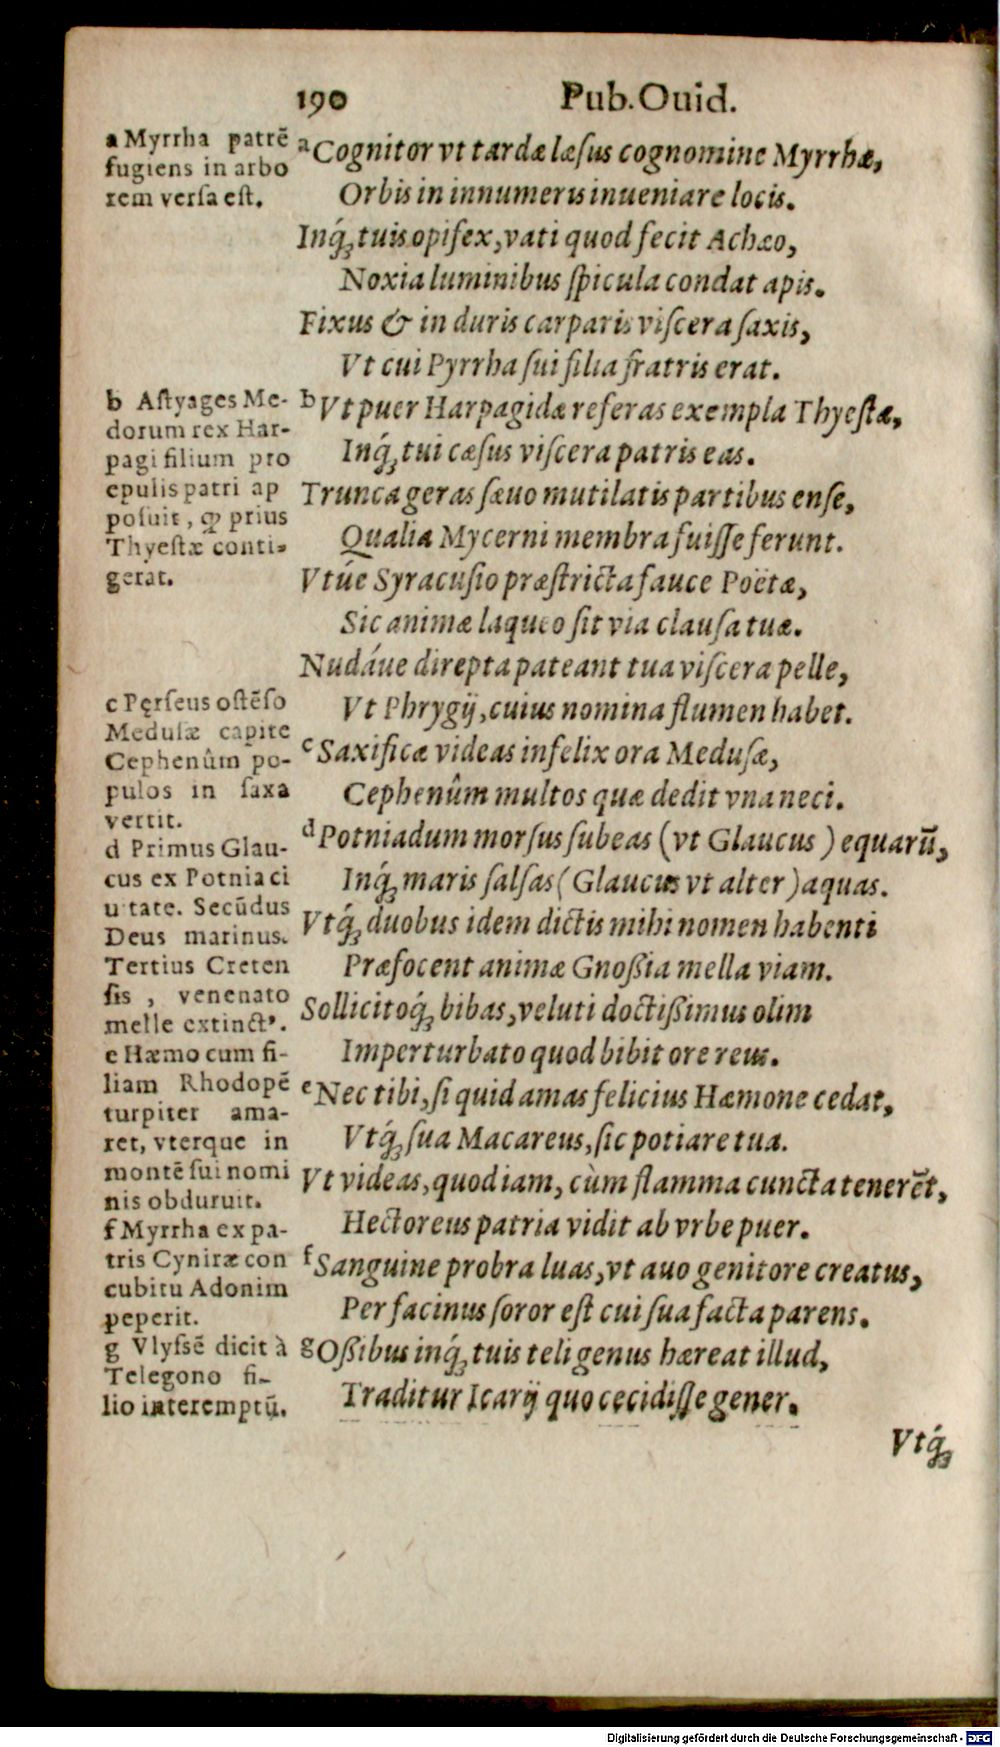 190 Pub. Ouid.
a Myrrha patrē
fugiens in arbo
rem verſa eſt.
a Cognitor vt tardæ læſus cognomine Myrrhæ,
Orbis in innumeris inueniare locis.
Inq́; tuis opifex, vati quod fecit Achæo,
Noxia luminibus ſpicula condat apis.
Fixus & in duris carparis viſcera ſaxis,
Vt cui Pyrrha ſui filia fratris erat.
b Aſtyages Me-
dorum rex Har-
pagi filium pro
epulis patri ap
poſuit, qꝫ prius
Thyeſtæ conti-
gerat.
b Vt puer Harpagidæ referas exempla Thyeſtæ,
Inq́; tui cæſus viſcera patris eas.
Trunca geras ſæuo mutilatis partibus enſe,
Qualia Mycerni membra fuiſſe ferunt.
Vtúe Syracuſio præſtricta fauce Poëtæ,
Sic animæ laqueo ſit via clauſa tuæ.
Nudáue direpta pateant tua viſcera pelle,
Vt Phrygij, cuius nomina flumen habet.
c Pęrſeus oſtēſo
Meduſæ capite
Cephenûm po-
pulos in ſaxa
vertit.
c Saxificæ videas infelix ora Meduſæ,
Cephenûm multos quæ dedit vna neci.
d Primus Glau-
cus ex Potnia ci
uitate. Secūdus
Deus marinus.
Tertius Creten
ſis, venenato
melle extinct⁹.
d Potniadum morſus ſubeas (vt Glaucus) equarū,
Inq́; maris ſalſas (Glaucus vt alter) aquas.
Vtq́; duobus idem dictis mihi nomen habenti
Præfocent animæ Gnoßia mella viam.
Sollicitoq́; bibas, veluti doctißimus olim
Imperturbato quod bibit ore reus.
e Hæmo cum fi-
liam Rhodopē
turpiter ama-
ret, vterque in
montē ſui nomi
nis obduruit.
e Nec tibi, ſi quid amas felicius Hæmone cedat,
Vtq́; ſua Macareus, ſic potiare tua.
Vt videas, quod iam, cùm flamma cuncta tenerēt,
Hectoreus patria vidit ab vrbe puer.
f Myrrha ex pa-
tris Cyniræ con
cubitu Adonim
peperit.
f Sanguine probra luas, vt auo genitore creatus,
Per facinus ſoror eſt cui ſua facta parens.
g Vlyſſē dicit à
Telegono fi-
lio interemptū.
g Oßibus inq́; tuis teli genus hæreat illud,
Traditur Icarij quo cecidiſſe gener.
Vtq́;
Digitalisierung gefördert durch die Deutsche Forschungsgemeinschaft - DFG